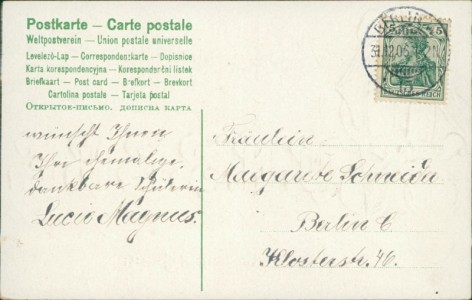 Postkarte – Carte postale
Weltpostverein – Union postale universelle
Levelező-Lap – Correspondenzkarte – Dopisnice
Karta korespondencyjna – Korespondenční listek
Briefkaart – Post card – Brefkort – Brevkort
Cartolina postale – Tarjeta postal
Открытое-письмо. дописна карта
wünscht Ihnen
Ihre ehemalige,
dankbare Schülerin
Lucie Magnus.
BERLIN
5
31.12.06
REICH
Fräulein
Margarete Schneider
Berlin C.
Klosterstr. 46.